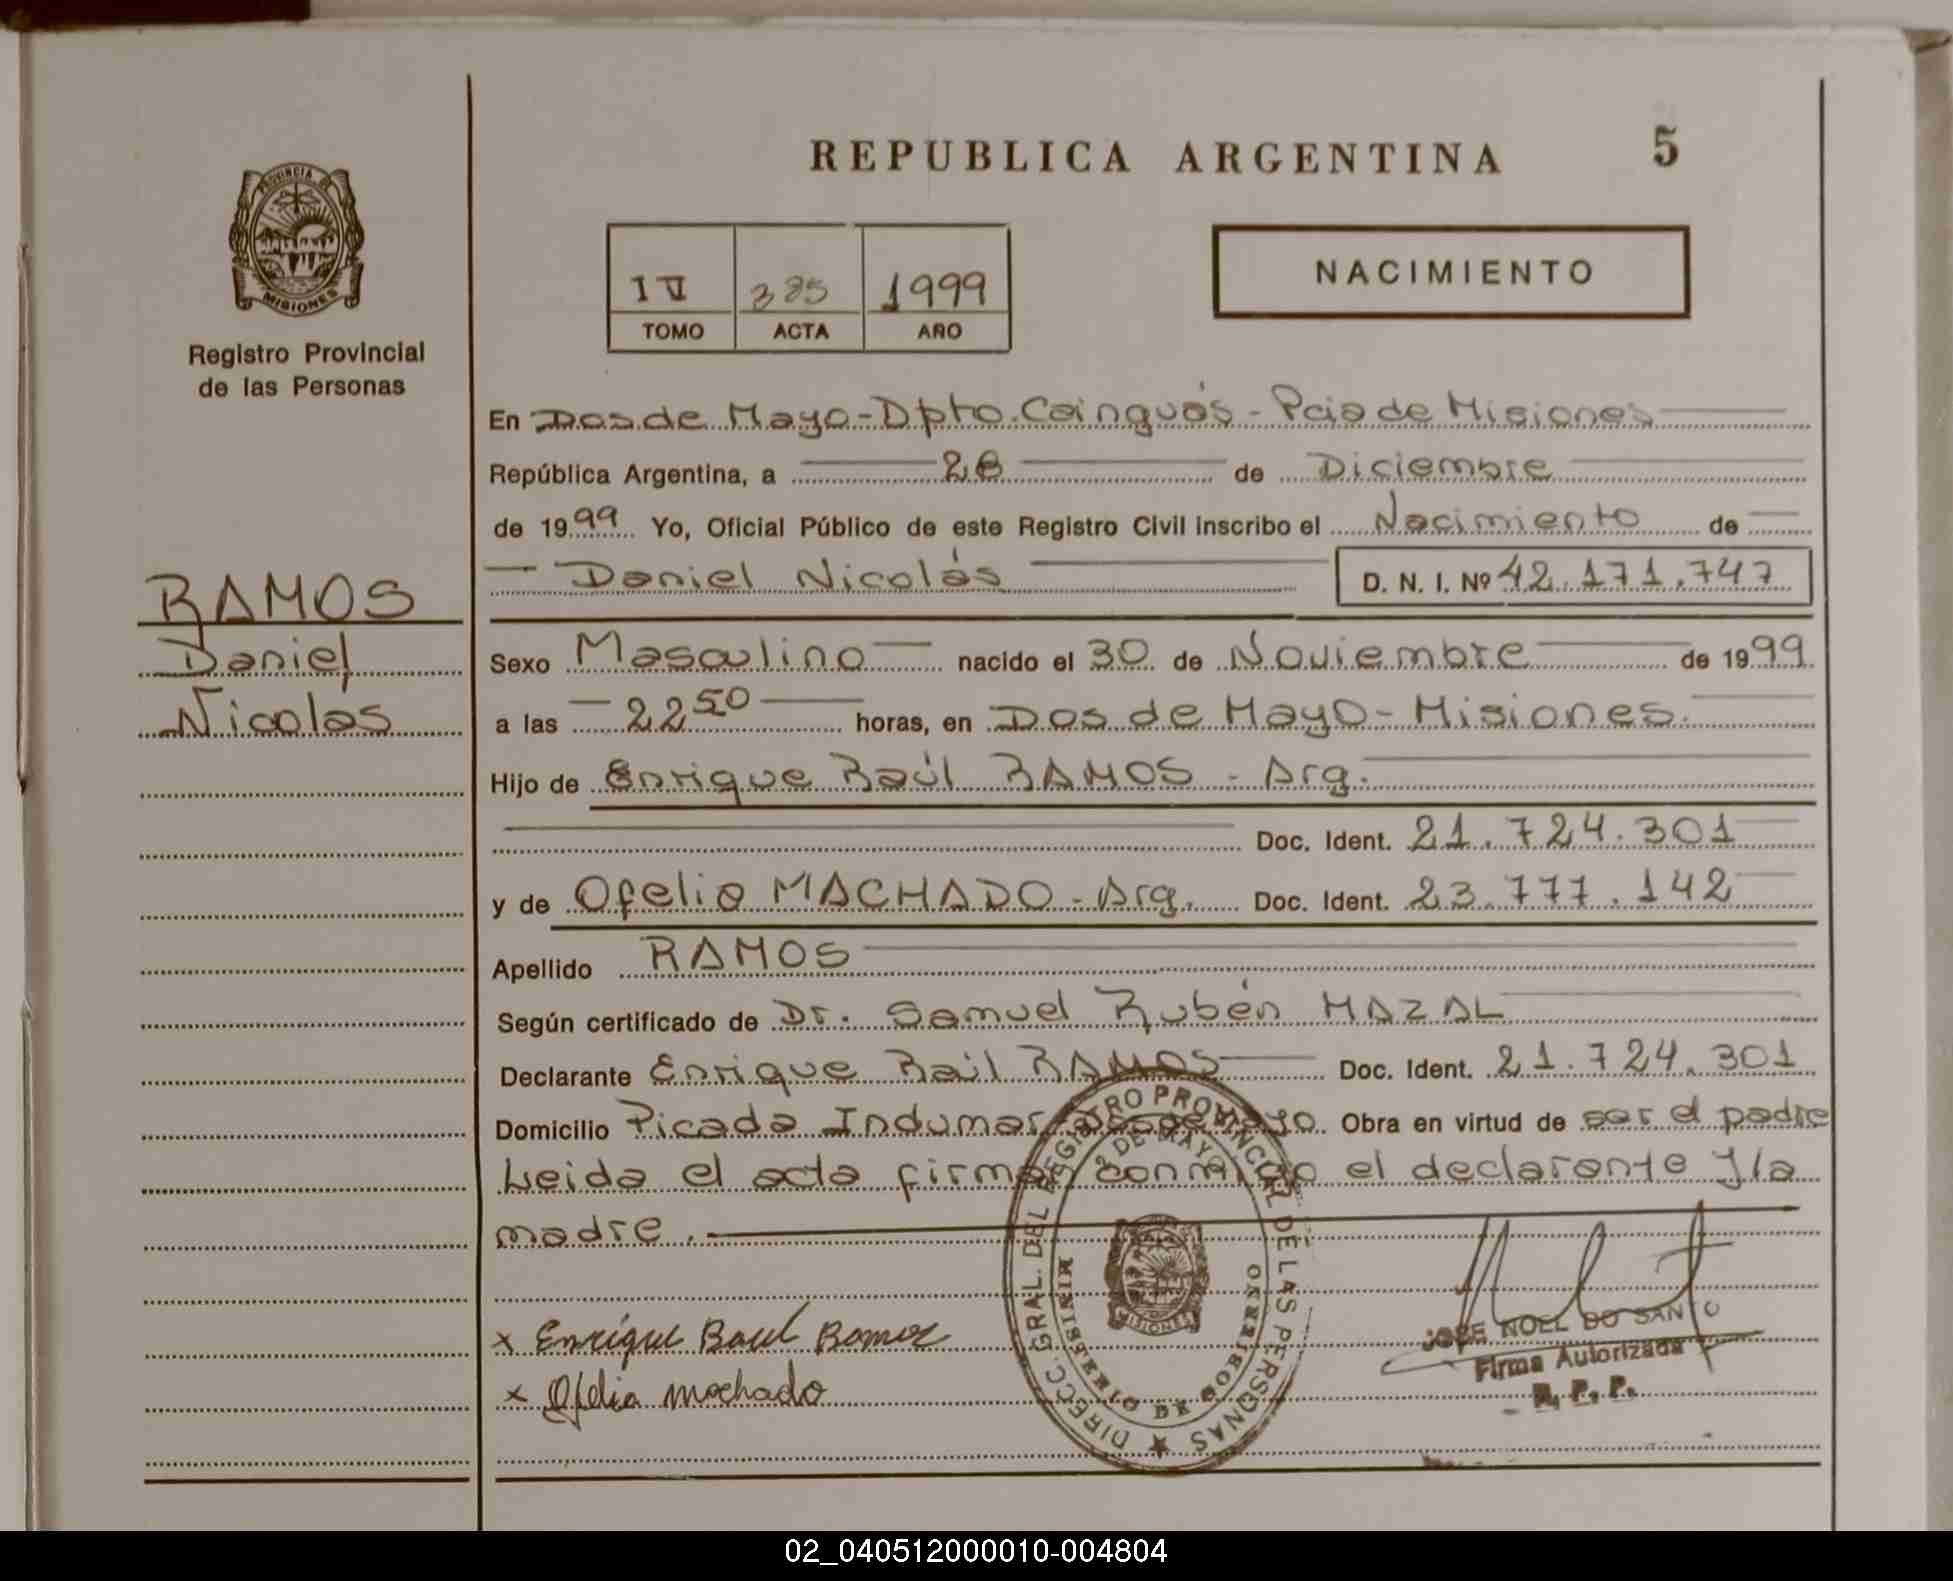 REPUBLICA ARGENTINA
5
PROVINCIA DE
MISIONES
Registro Provincial
de las Personas
IV
385
1999
TOMO
ACTA
AÑO
NACIMIENTO
En Dos de Mayo-Dpto. Cainguás - Pcia de Misiones
República Argentina, a 28 de Diciembre
de 1999 Yo, Oficial Público de este Registro Civil inscribo el Nacimiento de
Daniel Nicolás
D. N. I. Nº 42.171.747
RAMOS
Daniel
Nicolas
Sexo Masculino nacido el 30 de Noviembre de 1999
a las 22 50 horas, en Dos de Mayo - Misiones.
Hijo de Enrique Raúl RAMOS - Arg.
Doc. Ident. 21.724.301
y de Ofelia MACHADO - Arg. Doc. Ident. 23.777.142
Apellido RAMOS
Según certificado de Dr. Samuel Rubén MAZAL
Declarante Enrique Raúl RAMOS Doc. Ident. 21.724.301
Domicilio Picada Indumar Dos de Mayo. Obra en virtud de ser el padre
Leida el acta firman conmigo el declarante y la
madre.
x Enrique Raul Ramos
x Ofelia machado
DIRECC. GRAL. DEL REGISTRO PROVINCIAL DE LAS PERSONAS
2 DE MAYO
MINISTERIO DE GOBIERNO
MISIONES
JOSE NOEL DO SANTO
Firma Autorizada
R. P. P.
02_040512000010-004804